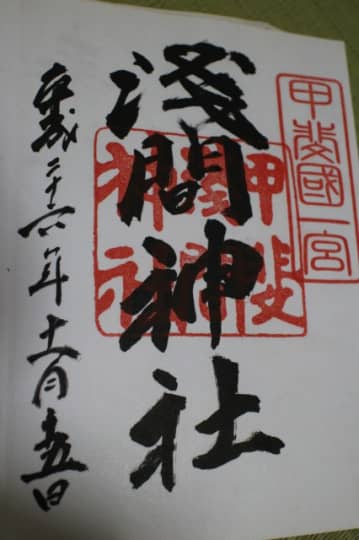 甲斐國一宮
淺間神社
平成二十六年十一月十五日